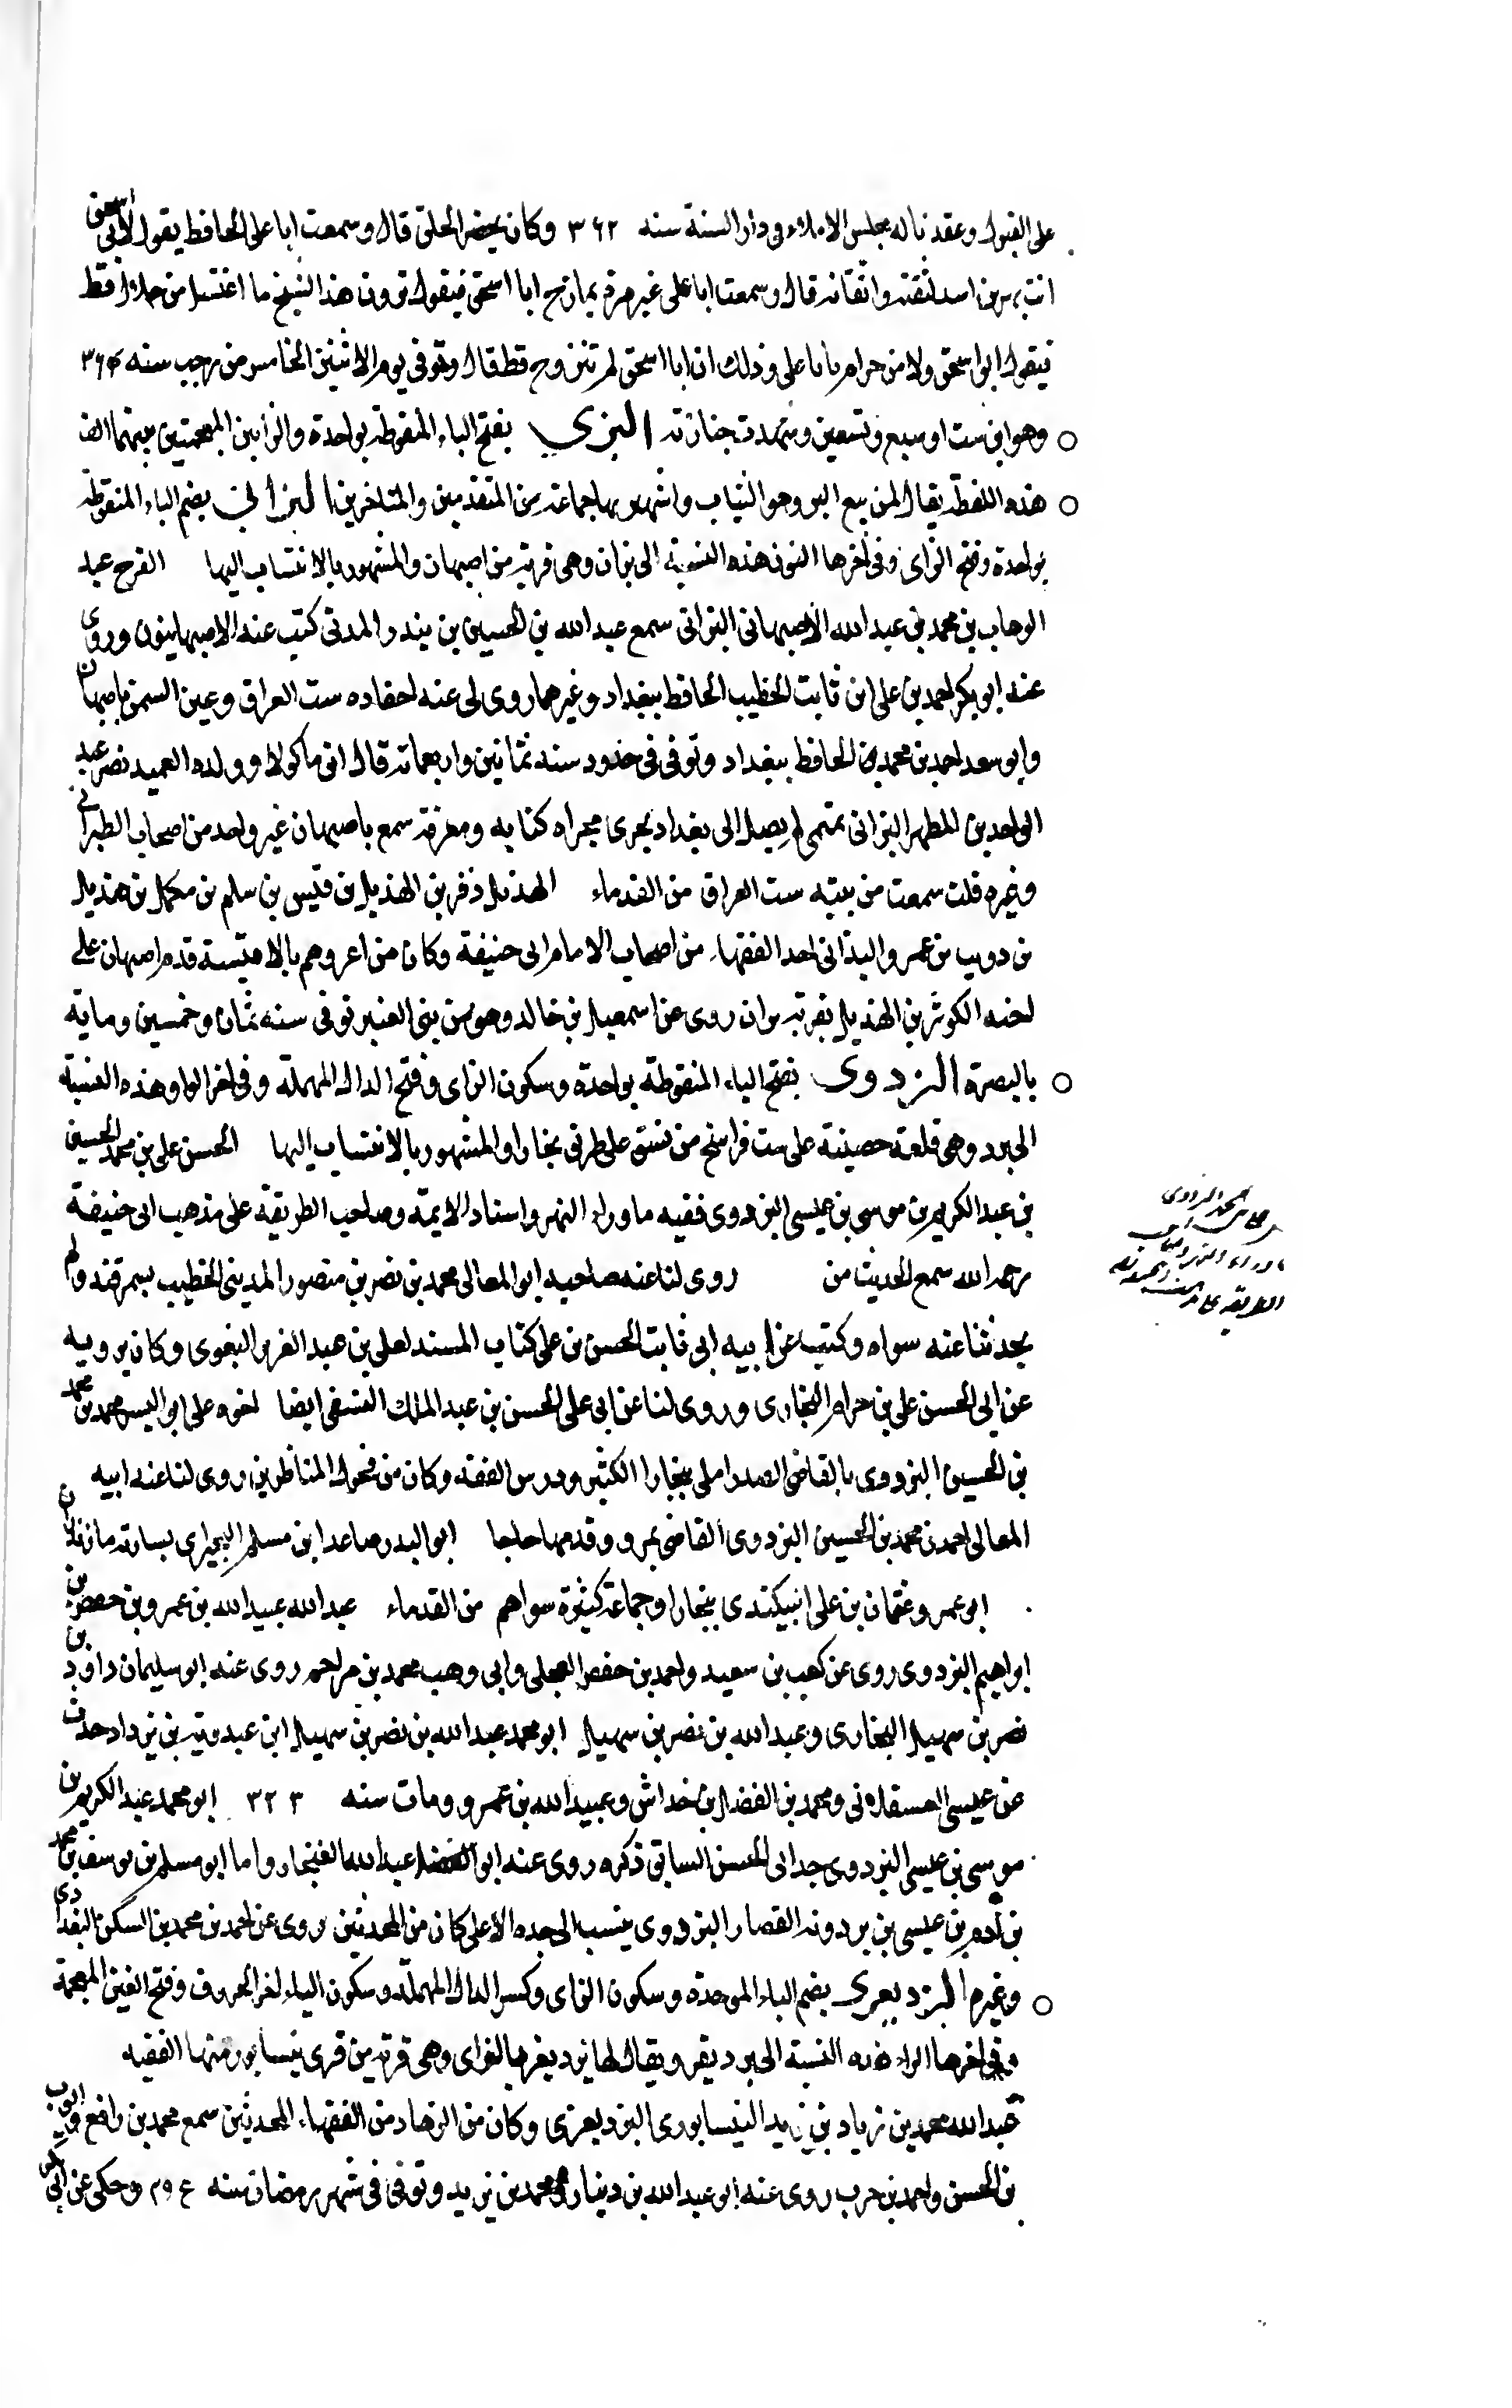 على القبول وعقدنا له مجلس الاملاء في دار السنة سنه ٣٦٢ وكان يحضر الحلق قال وسمعت ابا على الحافظ يقول لابى اسحق
انت بهز بن اسد لثقته واتقانه قال وسمعت ابا على غير مرة يمازح ابا اسحق فيقول ترون هذا الشيخ ما اغتسل من حلال قط
فيقول ابو اسحق ولا من حرام يا ابا على وذلك ان ابا اسحق لم تتزوج قط قال وتوفى يوم الاثنين الخامس من رجب سنه ٣٦٤
وهو ابن ست او سبع وتسعين وشهدت جنازته البزي بفتح الباء المنقوطة بواحدة والزايين المعجمتين بينهما الف
هذه اللفظة يقال لمن يبيع البز وهو الثياب واشتهر بها جماعة من المتقدمين والمتاخرين البزاني بضم الباء المنقوطة
بواحدة وفتح الزاى وفى اخرها النون هذه النسبة الى بزان وهى قرية من اصبهان والمشهور بالانتساب اليها الفرج عبد
الوهاب بن محمد بن عبد الله الاصبهانى البزانى سمع عبد الله بن الحسين بن بندار المدنى كتب عنه الاصبهانيون وروى
عنه ابو بكر احمد بن على ابن ثابت الخطيب الحافظ ببغداد وغيرهما روى لى عنه احفاده ست العراق وعين الشمس باصبهان
وابو سعد احمد بن محمد بن الحافظ ببغداد وتوفى فى حدود سنة ثمانين واربعمائة قال ابن ماكولا وولده العميد نصر عبد
الواحد بن المطهر البزانى يتمى لم يصل الى بغداد يجرى مجراه كتابه ومعرفة سمع باصبهان غير واحد من اصحاب الطبرانى
وغيره قلت سمعت من بنته ست العراق من القدماء الهذيل زفر بن الهذيل بن قيس بن سليم بن مكمل بن هذيل
بن ذويب بن عمرو البزانى احد الفقهاء من اصحاب الامام ابى حنيفة وكان من اعروهم بالاقيسة قدم اصبهان على
اخيه الكوثر بن الهذيل بقرية بزان روى عن اسمعيل بن خالد وهو من بنى العنبر توفى سنه ثمان وخمسين ومايه
بالبصرة البزدوى بفتح الباء المنقوطة بواحدة وسكون الزاى وفتح الدال المهملة وفى اخر الواو هذه النسبة
الى بزدة وهى قلعة حصينة على ست فراسخ من نسف على طريق بخارا والمشهور بالانتساب اليها الحسن على بن محمد الحسين
بن عبد الكريم بن موسى بن عيسى البزدوى فقيه ما وراء النهر واستاد الايمة وصاحب الطريقة على مذهب ابى حنيفة
رحمه الله سمع الحديث من روى لنا عنه صاحبه ابو المعالى محمد بن نصر بن منصور المدينى الخطيب بسمرقند ولم
يحدثنا عنه سواه وكتبت عن ابيه ابى ثابت الحسن بن على كتاب المسند لعلى بن عبد العزيز البغوى وكان يرويه
عن ابى الحسن على بن حرام البخارى وروى لنا عن ابى على الحسن بن عبد الملك النسفى ايضا اخوه على ابو اليسر محمد بن محمد
بن الحسين البزدوى بالقاضى الصدر املى ببخارا الكثير ودرس الفقه وكان من فحول المناظرين روى لنا عنه ابيه
المعالى احمد بن محمد بن الحسين البزدوى القاضى بمرو وقدمها حاجا ابو البدر صاعد ابن مسلم البجيرى بسارية مازندران
ابو عمرو عثمان بن على البيكندى ببخارا وجماعة كثيرة سواهم من القدماء عبد الله عبيد الله بن عمرو بن حفص بن
ابراهيم البزدوى روى عن كعب بن سعيد واحمد بن حفص العجلى وابى وهب محمد بن مزاحم روى عنه ابو سليمان داود بن
نصر بن سهيل البخارى وعبد الله بن نصر بن سهيل ابو محمد عبد الله بن نصر بن سهيل ابن عبدوية بن يزداد حدث
عن عيسى العسقلانى ومحمد بن الفضل بن خداش وعبيد الله بن عمرو ومات سنه ٣٢٣ ابو محمد عبد الكريم بن
موسى بن عيسى البزدوى جد ابى الحسن السابق ذكره روى عنه ابو عبد الله الغنجار واما ابو مسلم بن يوسف بن محمد
بن آدم بن عيسى بن بردونه القصار البزدوى ينسب الى جده الاعلى كان من المحدثين روى عن احمد بن محمد بن السكن البغدادى
وغيره البزديغرى بضم الباء الموحدة وسكون الزاى وكسر الدال المهملة وسكون الياء اخر الحروف وفتح الغين المعجمة
وفى اخرها الراء هذه النسبة الى بزديغر ويقال لها يزديغر بالزاى وهى قرية من قرى نيسابور منها الفقيه
عبد الله محمد بن زياد بن يزيد النيسابورى البزديغرى وكان من الزهاد من الفقهاء المحدثين سمع محمد بن رافع وايوب
بن الحسن واحمد بن حرب روى عنه ابو عبد الله بن دينار ومحمد بن يزيد وتوفى فى شهر رمضان سنه ٢٩٤ وحكى عن ابى